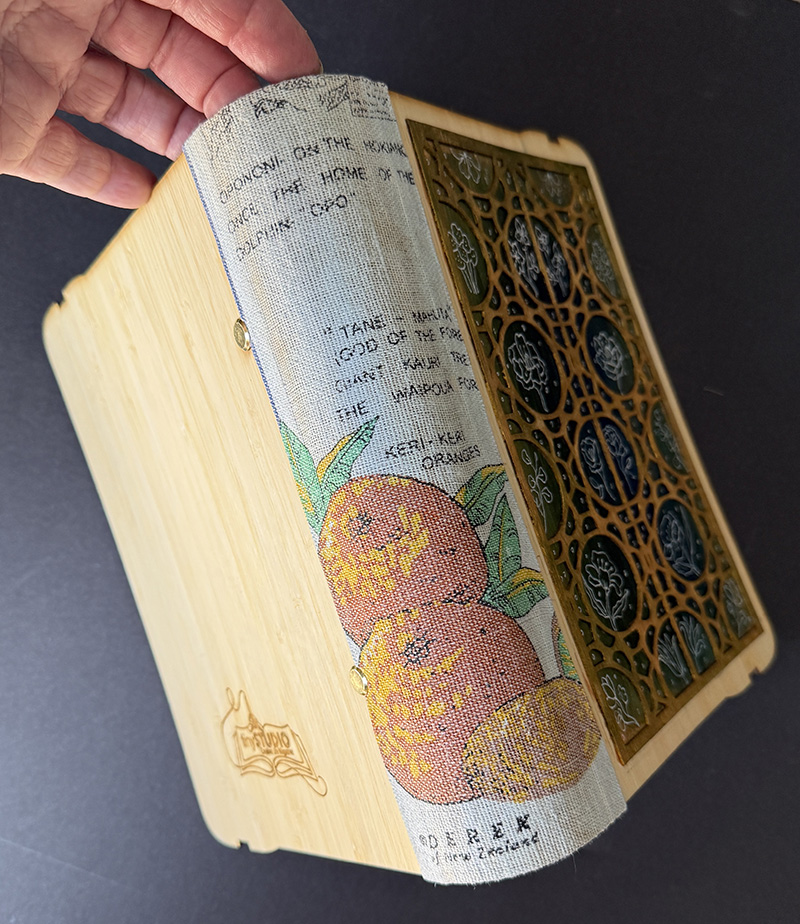 OPONONI - ON THE HOKIANG
ONCE THE HOME OF THE
DOLPHIN - "OPO"
"TANE - MAHUTA"
(GOD OF THE FORE
GIANT KAURI TRE
THE WAIPOUA FOR
KERI-KERI
ORANGES
© DEREK
of New Zealand
STUDIO